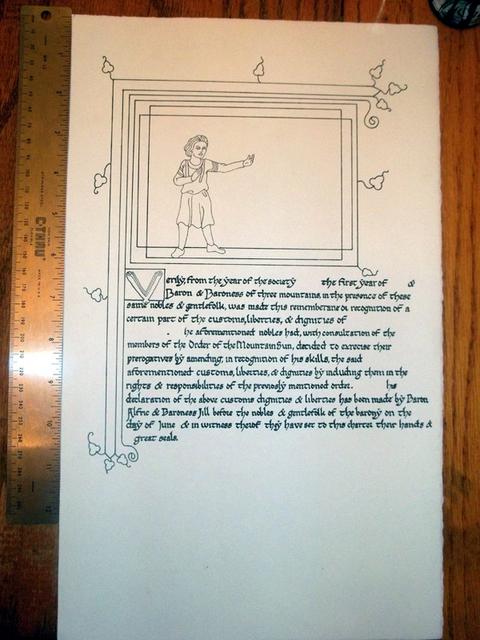 Verily, from the year of the society the first year of &
Baron & Baroness of three mountains, in the presence of these
same nobles & gentlefolk, was made this remembrance or recognition of a
certain part of the customs, liberties, & dignities of
he aforementioned nobles had, with consultation of the
members of the Order of the Mountain Sun, decided to exercise their
prerogatives by amending, in recognition of his skills, the said
aforementioned customs, liberties, & dignities by including them in the
rights & responsibilities of the previously mentioned order. his
declaration of the above customs dignities & liberties has been made by Baron
& Baroness Jill before the nobles & gentlefolk of the barony on the
day of June & in witness therof they have set to this charter their hands &
great seals.